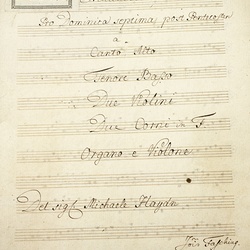 Pro Dominica septima post Pentecosten
a
Canto Alto
Tenore Basso
Due Violini
Due Corni in F
Organo e Violone
Del sigl Michaele Haydn